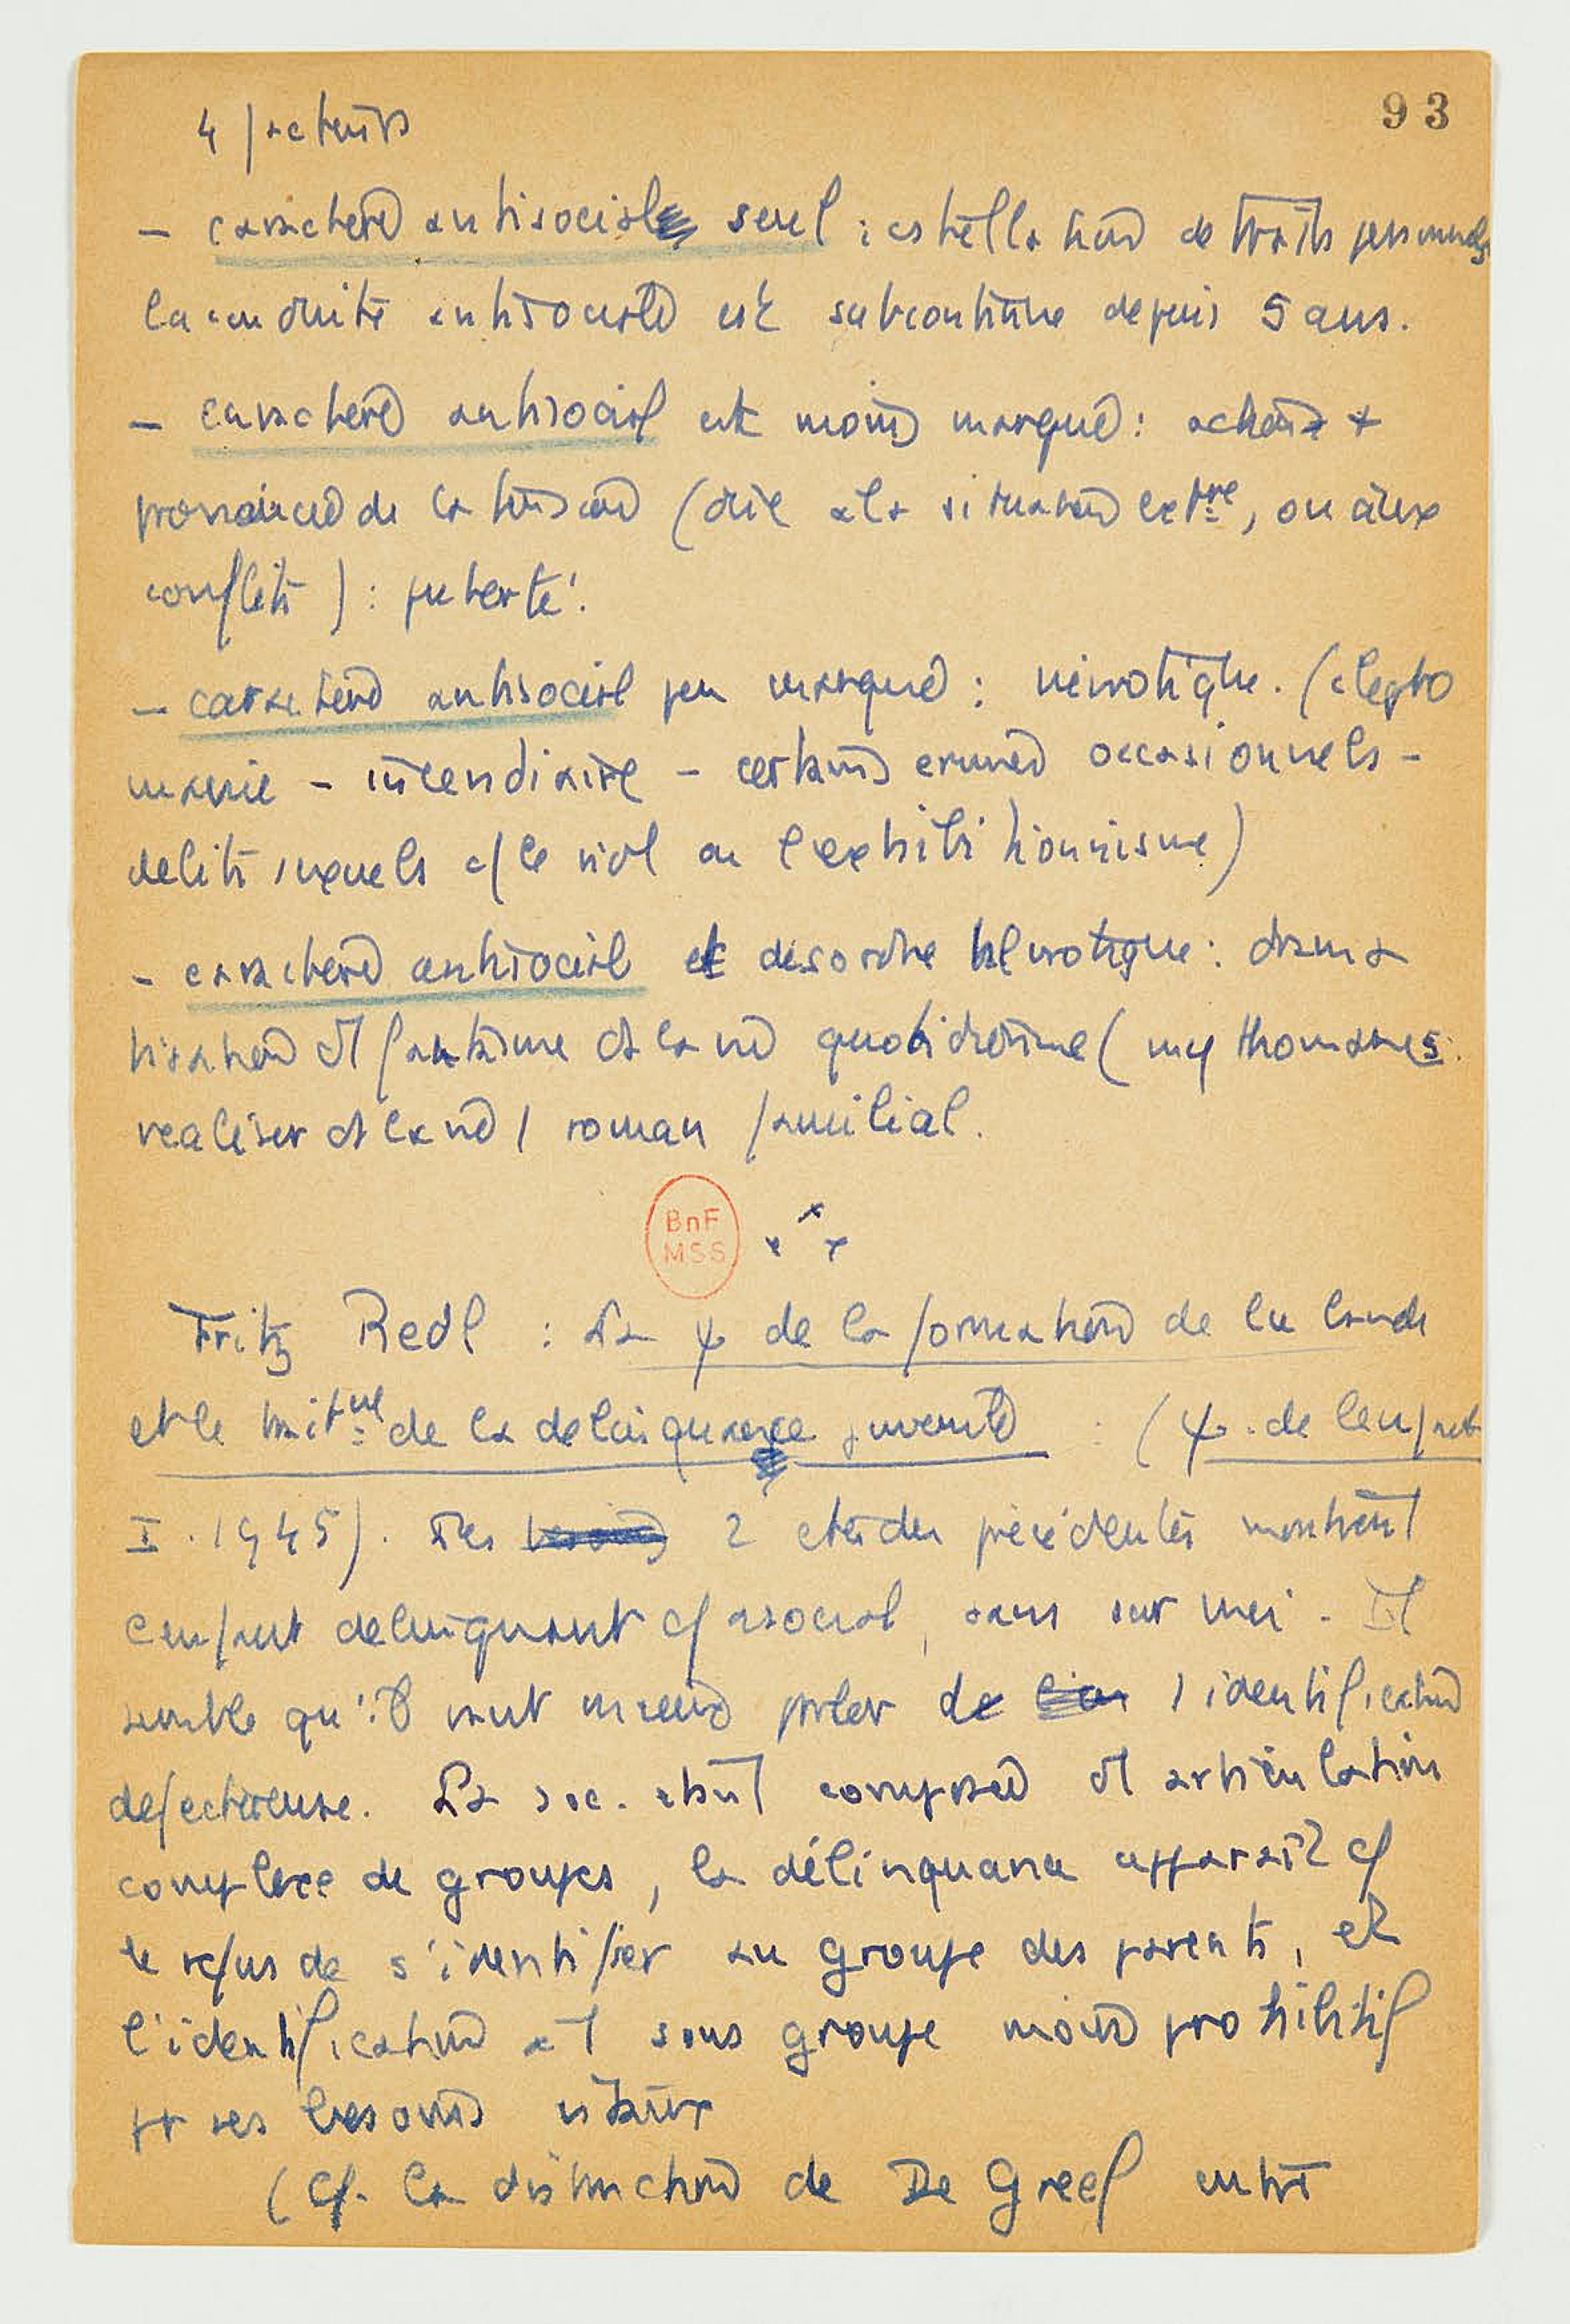 93
4 facteurs
- caractère antisocial seul : constellation de traits personnels
la conduite antisociale est subcontinue depuis 5 ans.
- caractère antisocial est moins marqué : action +
prononcée de la tension (due à la situation extre, ou aux
conflits) : puberté.
- caractère antisocial peu marqué : névrotique. (clepto
manie - incendiaire - certains crimes occasionnels -
délits sexuels c/ le viol ou l'exhibitionnisme)
- caractère antisocial et désordre névrotique : drama
tisation d'1 fantasme ds la vie quotidienne (mythomanes
réaliser ds la vie 1 roman familial.
BnF
MSS
x x x
Fritz Redl : La ψ de la formation de la bande
et le traitent de la délinquance juvénile : (ψ. de l'enfant
I. 1945). Les 2 études précédentes montrent
l'enfant délinquant c/ asocial, sans sur moi. Il
semble qu'il vaut mieux parler de 1 identification
défectueuse. La soc. étant composée d'1 articulation
complexe de groupes, la délinquance apparaît c/
le refus de s'identifier au groupe des parents, et
l'identification à 1 sous groupe moins prohibitif
pr ses besoins vitaux
(Cf. la distinction de De Greef entre